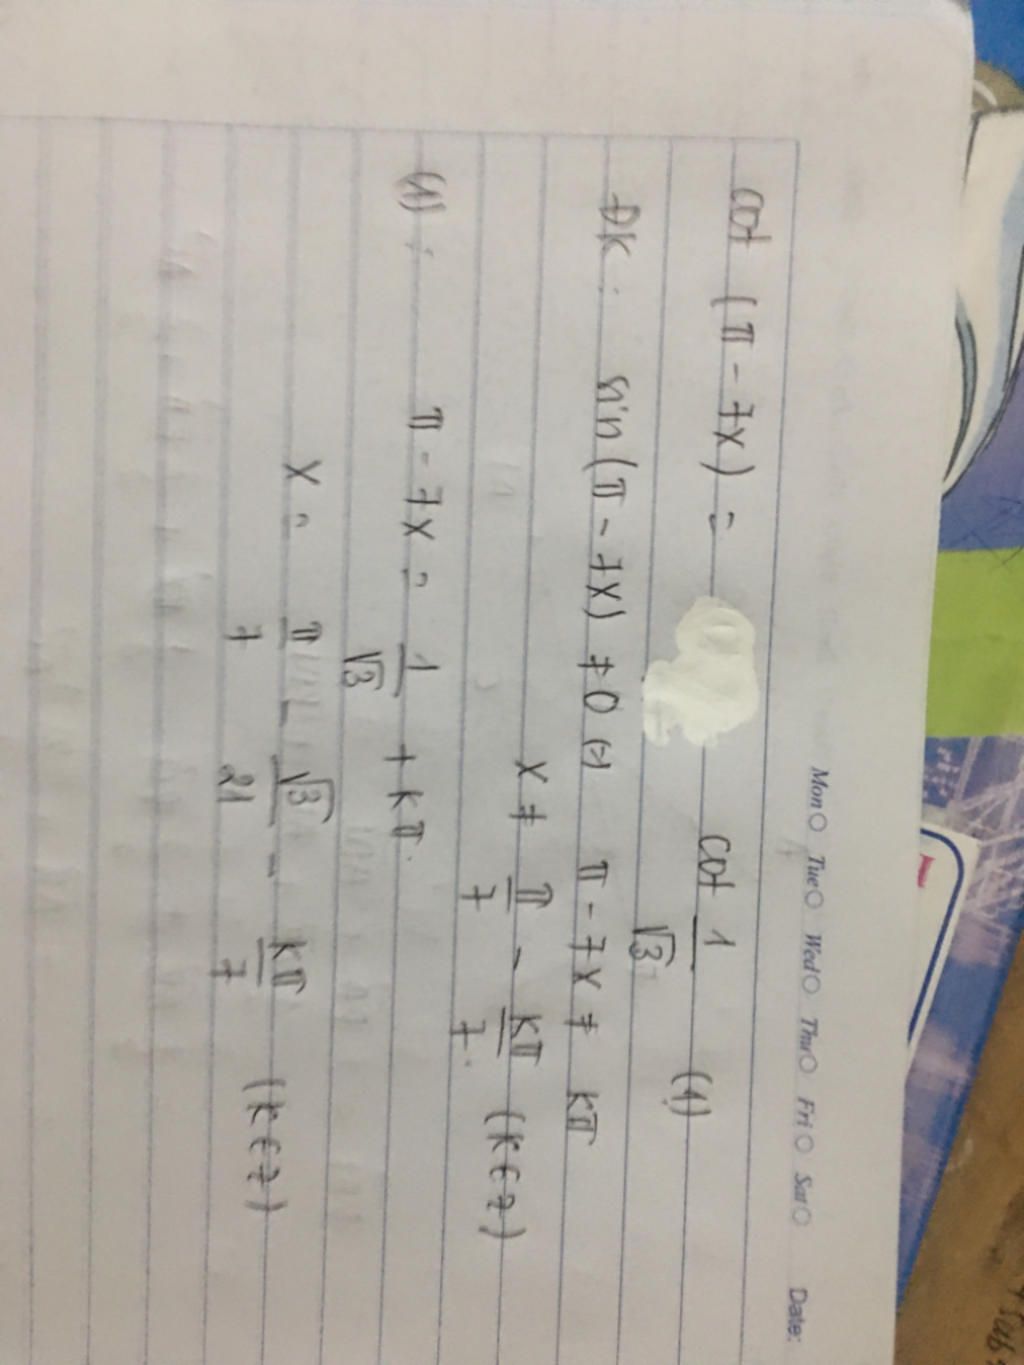 Mon Tue Wed Thu Fri Sat Date:
cot (π - 7x) = cot 1/√3 (1)
ĐK: sin(π - 7x) ≠ 0 (=) π - 7x ≠ kπ
x ≠ π/7 - kπ/7. (k ∈ Z)
(1): π - 7x = 1/√3 + kπ.
x = π/7 - √3/21 - kπ/7 (k ∈ Z)